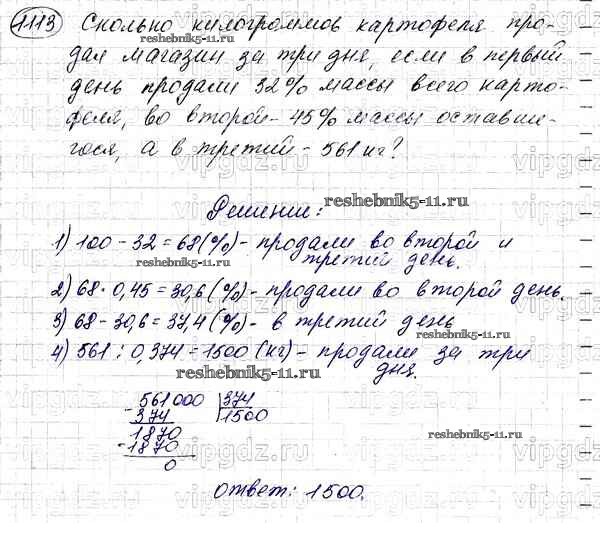 1113 Сколько килограммов картофеля про-
reshebnik5-11.ru
дал магазин за три дня, если в первый
день продали 32% массы всего карто-
vipgdz.ru
феля, во второй - 45% массы оставше-
гося, а в третий - 561 кг?
vipgdz.ru
reshebnik5-11.ru
Решение:
1) 100 - 32 = 68 (%) - продали во второй и
третий день.
2) 68 · 0,45 = 30,6 (%) - продали во второй день.
3) 68 - 30,6 = 37,4 (%) - в третий день
4) 561 : 0,374 = 1500 (кг) - продали за три
reshebnik5-11.ru
дня.
561000 374
- 374 1500
reshebnik5-11.ru
1870
- 1870
0
vipgdz.ru
Ответ: 1500.